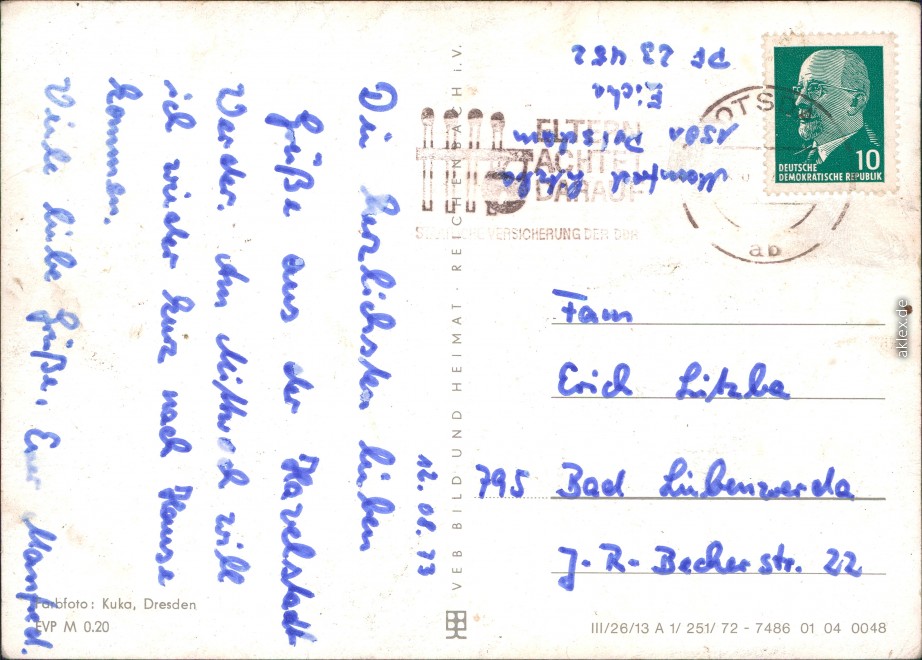 12.08.73
Die herzlichsten lieben
Grüße aus der Havelstadt
Werder. Am Mittwoch will
ich wieder kurz nach Hause
kommen.
Viele liebe Grüße, Euer Manfred.
Manfred
1500 Potsdam
Eiche
PF 23 452
ELTERN
ACHTET
DARAUF
VERSICHERUNG DER DDR
ab
10
DEUTSCHE
DEMOKRATISCHE REPUBLIK
Fam
Erich Litzba
795 Bad Liebenwerda
J.-R.-Becherstr. 22
VEB BILD UND HEIMAT · REICHENBACH i.V.
Farbfoto: Kuka, Dresden
EVP M 0.20
III/26/13 A 1/ 251/ 72 - 7486 01 04 0048
aklex.de